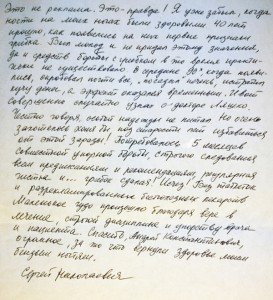 Это не реклама. Это - правда! Я уже забыл, когда
ногти на моих ногах были здоровыми. 40 лет
прошло, как появились на них первые признаки
грибка. Вид мой и не придал этому значения,
да и средств борьбы с грибком в то время практи-
чески не существовало. В середине 90х когда появи-
лись, опробовал почти все, посадил печень, настрадал
кучу денег, а эффект оказался временным. И вот
совершенно случайно узнаю о докторе Ляшко.
Честно говоря, особых надежд не питал. Но очень
захотелось хотя бы под старости лет избавиться
от этой заразы! Потребовалось 5 месяцев
совместной упорной борьбы, строгого следования
всем предписаниям и рекомендациям, регулярная
чистка и... грибок сдался! Исчез! Без таблеток
и разрекламированных бесполезных лекарств.
Маленькое чудо произошло благодаря вере в
лечение, строгой дисциплине и упорству врача
и пациента. Спасибо, Андрей Константинович,
огромное, за то что вернули здоровье моим
бледным ногтям.
Сергей Николаевич